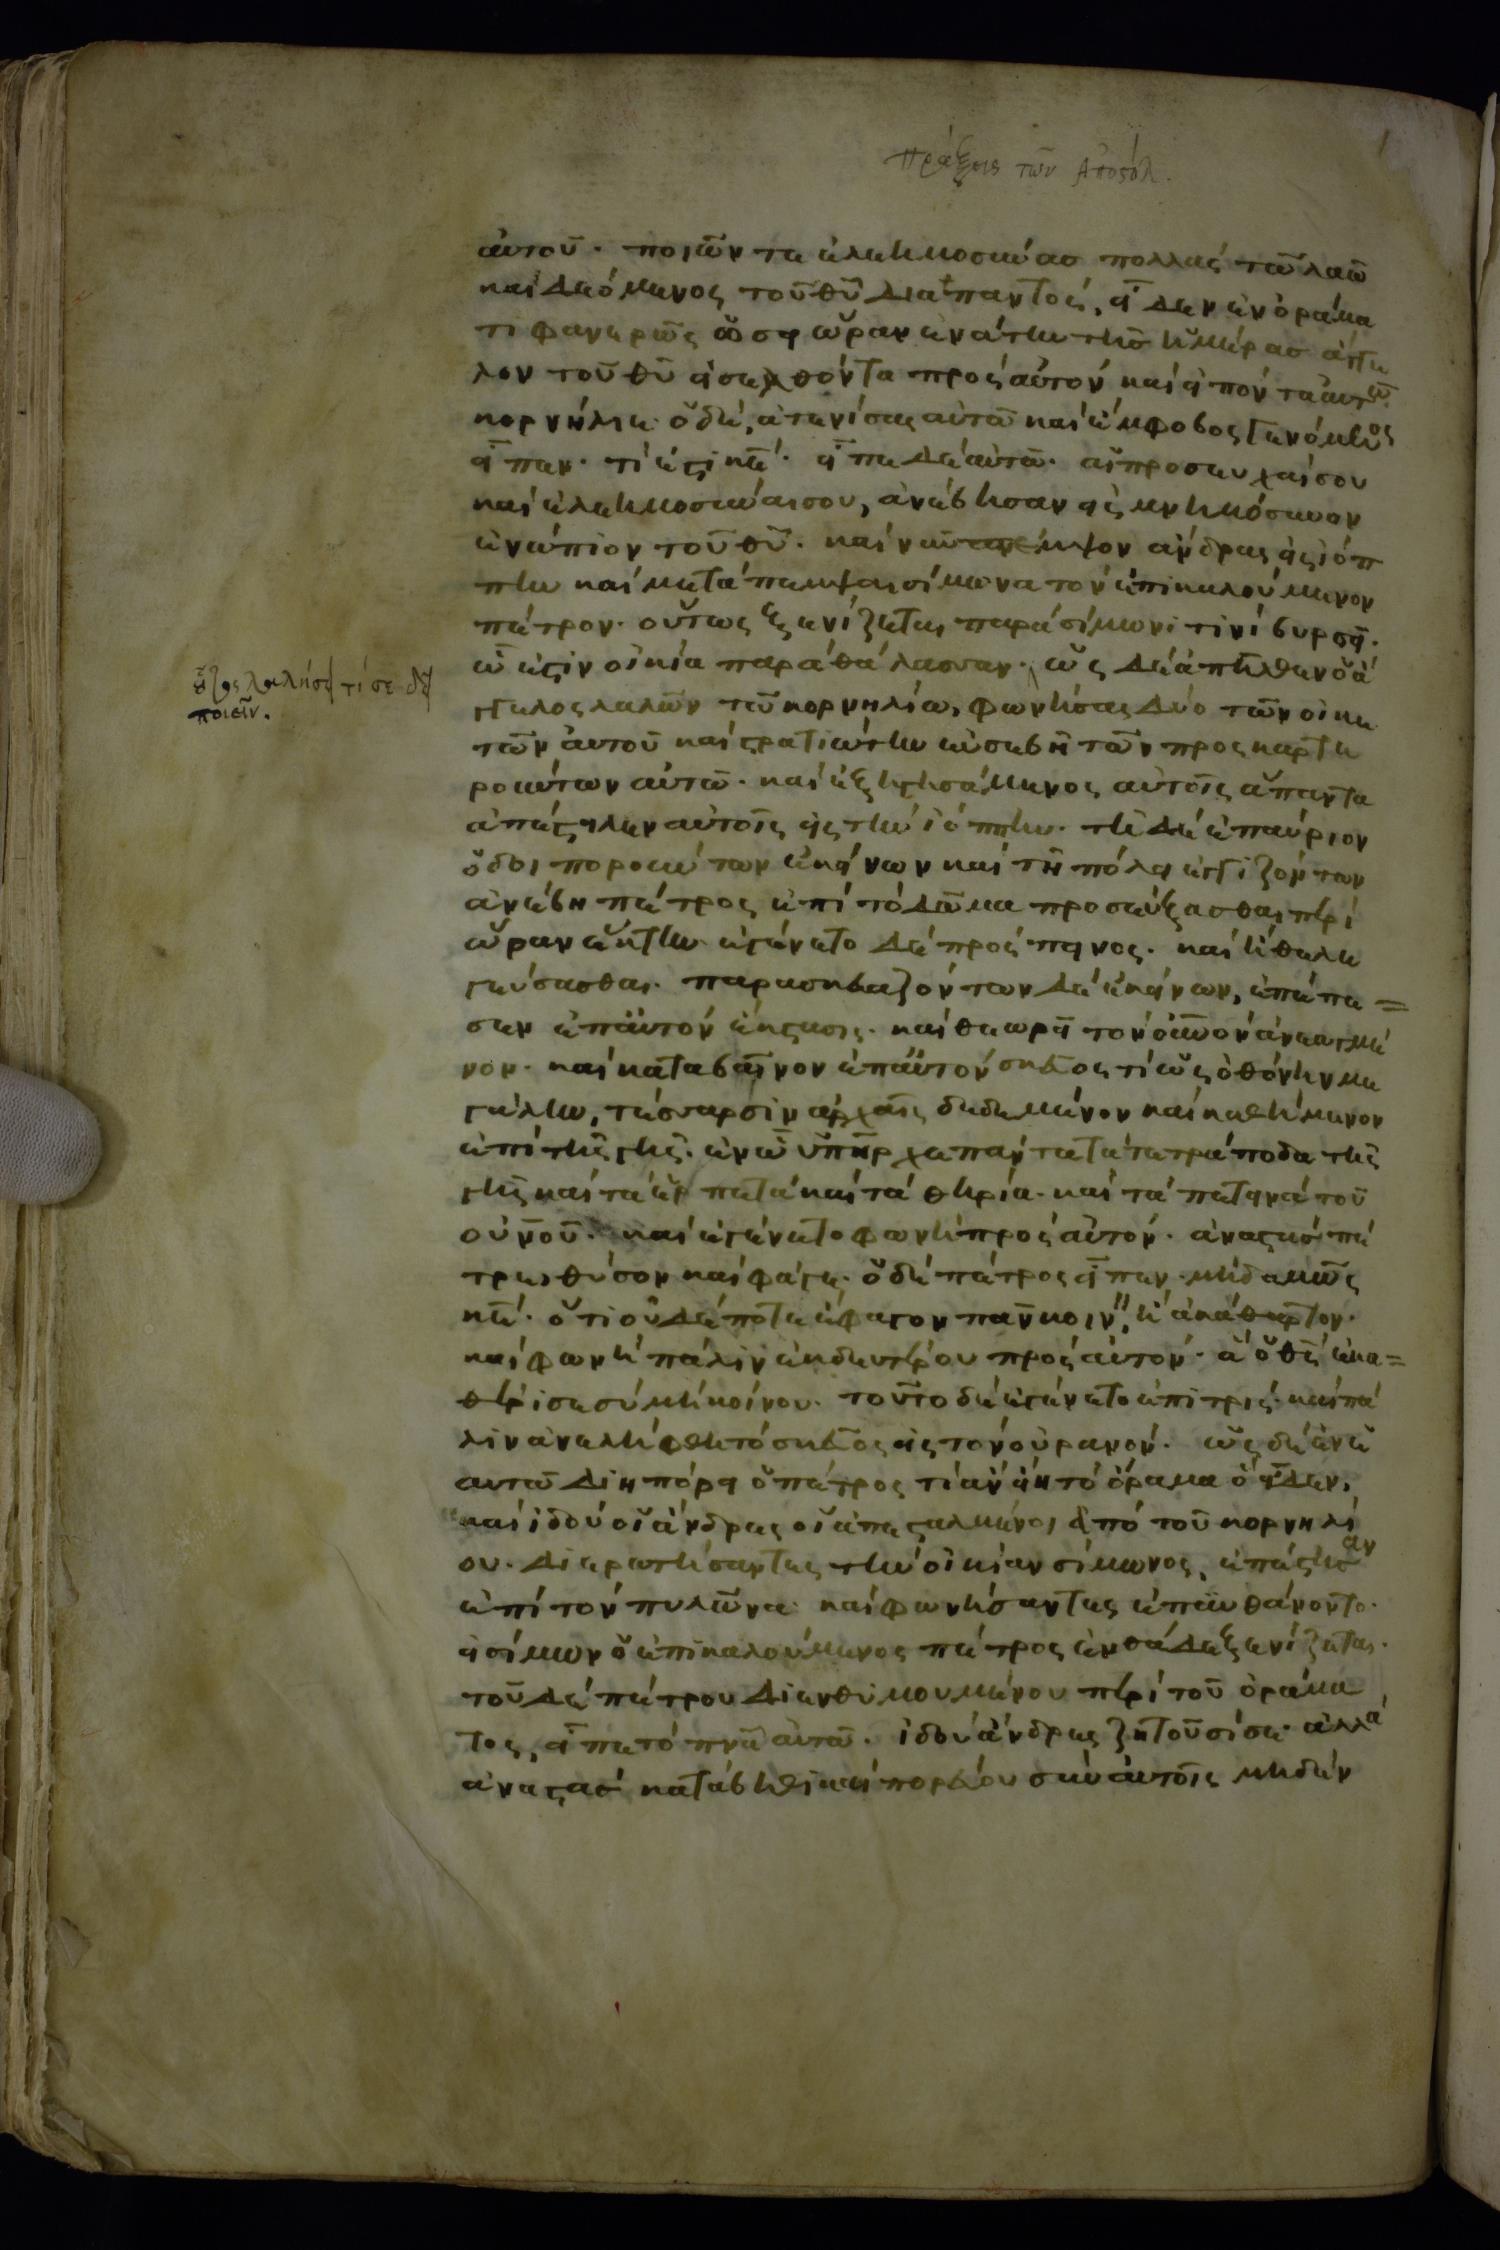 Πράξεις τῶν Ἀποστόλ.
αὐτοῦ· ποιῶν τε ἐλεημοσύνας πολλὰς τῶ λαῶ
καὶ δεόμενος τοῦ θῡ διαπαντός, εἶδεν ἐν ὁράμα
τι φανερῶς ὡσεὶ ὥραν ἐνάτην τῆς ἡμέρας ἄγγε
λον τοῦ θῡ εἰσελθόντα πρὸς αὐτὸν καὶ εἰπόντα αὐτῶ
κορνήλιε· ὁ δὲ, ἀτενίσας αὐτῶ καὶ ἔμφοβος γενόμενος
εἶπεν· τί ἐστι κε̄· εἶπε δὲ αὐτῶ· αἱ προσευχαί σου
καὶ ἐλεημοσύναι σου, ἀνέβησαν εἰς μνημόσυνον
ἐνώπιον τοῦ θῡ· καὶ νῦν πέμψον ἄνδρας εἰς ἰόπ
πην καὶ μετάπεμψαι σίμωνα τὸν ἐπικαλούμενον
πέτρον· οὕτως ξενίζεται παρὰ σίμωνι τινὶ βυρσεῖ·
ὧ ἐστιν οἰκία παρὰ θάλασσαν· ὡς δὲ ἀπῆλθεν ὁ ἄ
οὗτος λαλήσει τί σε δεῖ
ποιεῖν.
γγελος λαλῶν τῶ κορνηλίω, φωνήσας δύο τῶν οἰκε
τῶν αὐτοῦ καὶ στρατιώτην εὐσεβῆ τῶν προσκαρτε
ρούντων αὐτῶ· καὶ ἐξηγησάμενος αὐτοῖς ἅπαντα
ἀπέστειλεν αὐτοὺς εἰς τὴν ἰόππην· τῆ δὲ ἐπαύριον
ὁδοιπορούντων ἐκείνων καὶ τῆ πόλει ἐγγιζόντων
ἀνέβη πέτρος ἐπὶ τὸ δῶμα προσεύξασθαι περὶ
ὥραν ἕκτην· ἐγένετο δὲ πρόσπεινος· καὶ ἤθελε
γεύσασθαι· παρασκευαζόντων δὲ ἐκείνων, ἐπέπε=
σεν ἐπ αὐτὸν ἔκστασις· καὶ θεωρεῖ τὸν οὐνον ἀνεωγμέ
νον· καὶ καταβαῖνον ἐπ αὐτὸν σκεῦος τί ὡς ὀθόνην με
γάλην, τέσσαρσιν ἀρχαῖς δεδεμένον καὶ καθήμενον
ἐπὶ τῆς γῆς· ἐν ὧ ὑπῆρχε πάντα τὰ τετράποδα τῆς
γῆς καὶ τὰ ἑρπετὰ καὶ τὰ θηρία· καὶ τὰ πετεινὰ τοῦ
οὐνοῦ· καὶ ἐγένετο φωνὴ πρὸς αὐτόν· ἀναστὰς πέ
τρε, θύσον καὶ φάγε· ὁ δὲ πέτρος εἶπεν· μηδαμῶς
κε̄· ὅτι οὐδέποτε ἔφαγον πᾶν κοινὸν, ἢ ἀκάθαρτον·
καὶ φωνὴ πάλιν ἐκ δευτέρου πρὸς αὐτόν· ἃ ὁ θς̄ ἐκα=
θέρισε σὺ μὴ κοίνου· τοῦτο δὲ ἐγένετο ἐπὶ τρίς· καὶ πά
λιν ἀνελήφθη τὸ σκεῦος εἰς τὸν οὐρανόν· ὡς δὲ ἐν ἑ
αυτῶ διηπόρει ὁ πέτρος τί ἂν εἴη τὸ ὅραμα ὃ εἶδεν,
καὶ ἰδοὺ οἱ ἄνδρες οἱ ἀπεσταλμένοι ἀπὸ τοῦ κορνηλί
ου· διερωτήσαντες τὴν οἰκίαν σίμωνος, ἐπέστησαν
ἐπὶ τὸν πυλῶνα· καὶ φωνήσαντες ἐπυνθάνοντο·
εἰ σίμων ὁ ἐπικαλούμενος πέτρος ἐνθάδε ξενίζεται·
τοῦ δὲ πέτρου διενθυμουμένου περὶ τοῦ ὁράμα
τος, εἶπε τὸ πνᾶ αὐτῶ· ἰδοὺ ἄνδρες ζητοῦσί σε· ἀλλὰ
ἀναστὰς κατάβηθι καὶ πορεύου σὺν αὐτοῖς μηδὲν